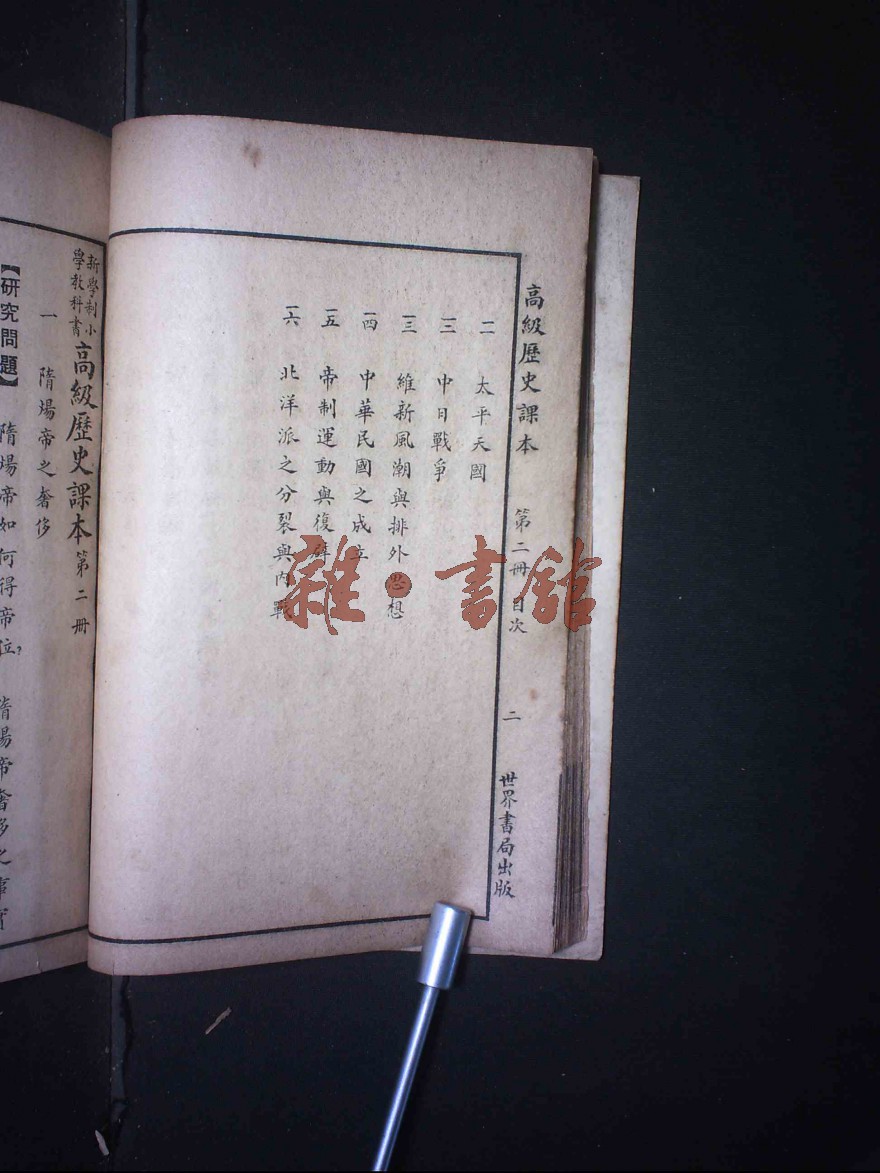 高級歷史課本 第二冊 目次 二 世界書局出版
一一 太平天國
一二 中日戰爭
一三 維新風潮與排外思想
一四 中華民國之成立
一五 帝制運動與復辟
一六 北洋派之分裂與內戰
雜·書館
新學制小
學教科書
高級歷史課本 第二冊
一 隋煬帝之奢侈
【研究問題】 隋煬帝如何得帝位? 隋煬帝奢侈之事實